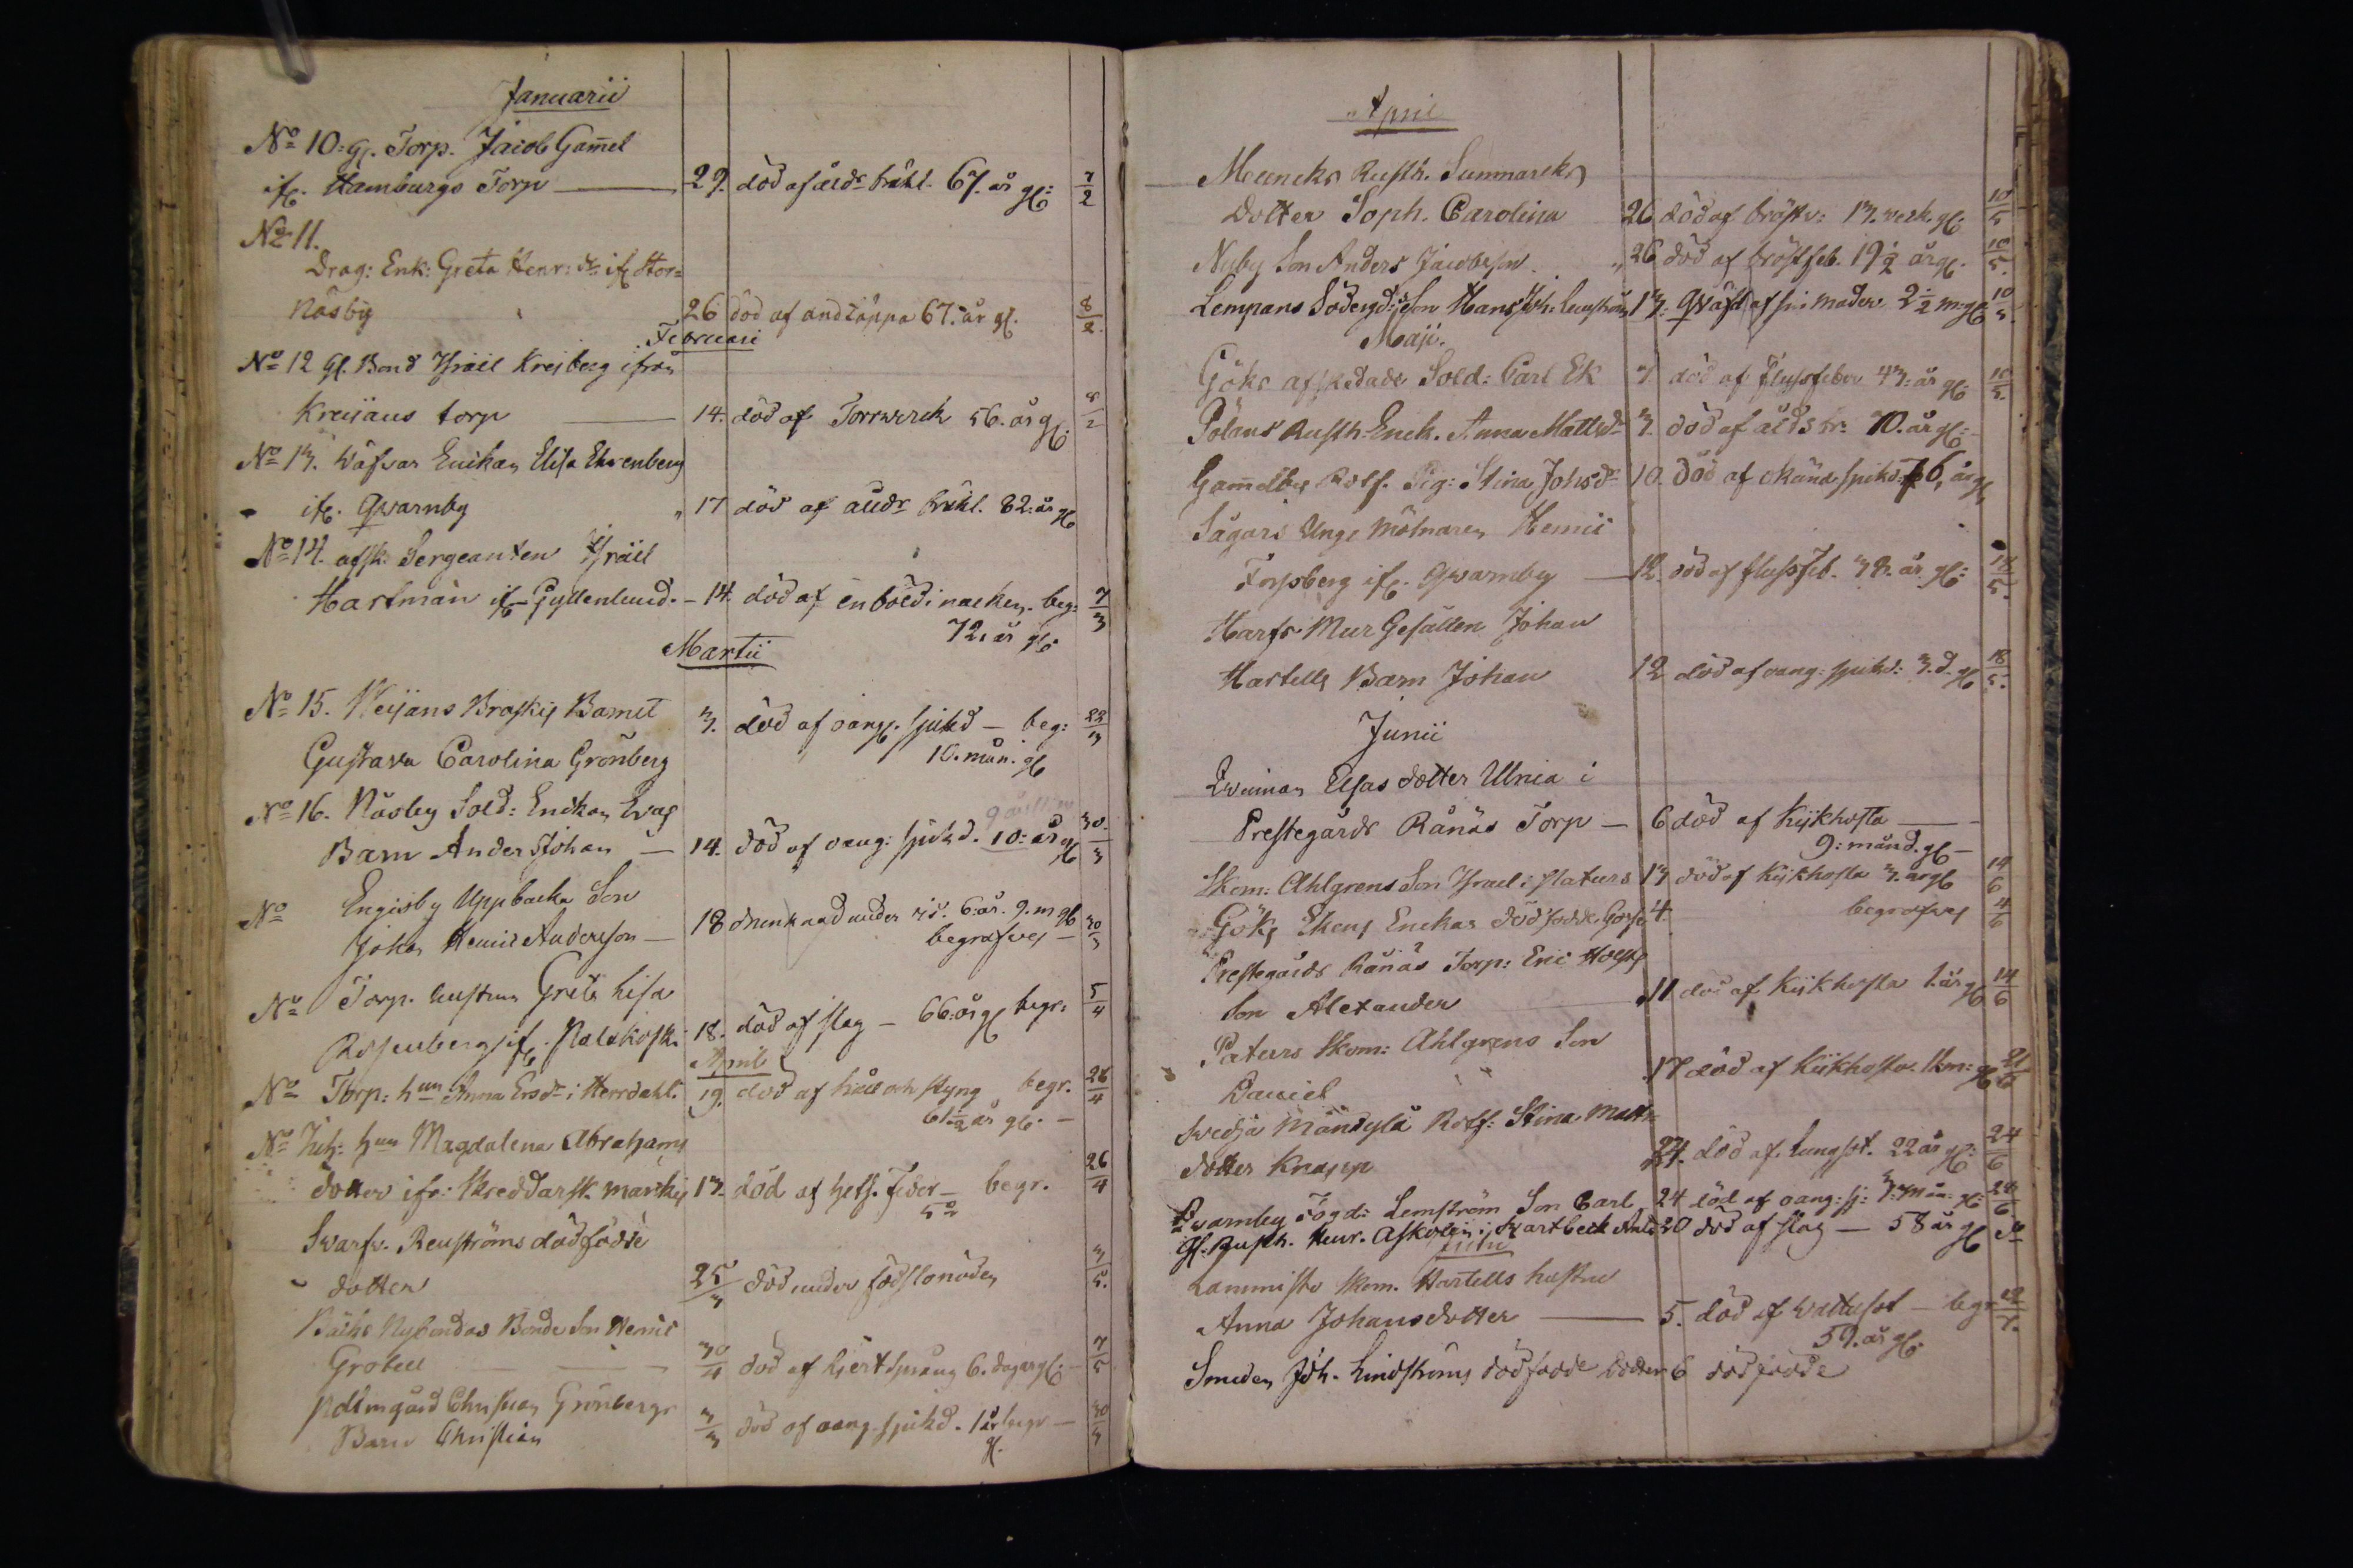 Januarii
No 10. gl. Torp. Jacob Gam̄el
ifr. Hamburgs Torp — 29. död af ålds bräkl. 67. år gl: 7/2
No 11.
Drag: Enk: Greta Henr: dr ifr Stor=
Näsby 26 död af andtäppa 67. år gl. 8/2
Februari
No 12 gl. Bond Israel Kreiberg ifrån
Kreijans torp — 14. död af Torrwerck 56. år gl. 8/2
No 13. Wäfvar Enikan Elisa Ehrenberg
ifr. Qvarnby 17 död af ålds bräkl. 82. år gl
No 14. afsk. Sergeanten Israel
Hartman ifr Gyllenlund. — 14. död af en böld i nacken. beg: 7/3
72. år gl.
Martii
No 15. Weijans Barnet 3. död af oang. sjukd — beg: 22/3
Gustava Carolina Grönberg 10. mån. gl
No 16. Näsby Sold: Enckan
Barn Anders Johan — 14. död af oang: sjukd. 10: år gl 30/3
No Engisby Uppbacka Son
Johan Henric Andersson — 18 drunknad under is. 6. år. 9. m gl 30/3
begrafves —
No Torp. hustrun Greta Lisa
Rosenberg ifr. Palakoski 18. död af slag — 66: år gl begr: 5/4
April
No Torp: hun Anna Ersdr i Herrdahl. 19. död af håll och styng begr. 26/4
61 1/2 år gl. —
No hun Magdalena Abrahams
dotter ifr: Skreddarsk. 13. död af hets. feber — begr. 26/4
Svarfv. Renströms dödfödde
dotter 25/3 död under födslonöden 3/5.
Bonde Son Henric
Grobell 30/4 död af hjertsprång 6. dagar gl. 7/5
Christian Grönbergs
Barn Christian 3/3 död af oang. sjukd. 1 år begr — 30/3
gl.
April
Muncks Rusth. Sunnarcks
Dotter Soph. Carolina 26 död af bröstv: 13. veck. gl. 10/5
Nyby Son Anders Jacobsson 26 död af bröstfeb. 19 1/2 år gl. 10/5.
Lempans Son Hans Joh: 13. Qväfd af sin moder 2 1/2 m: gl 10/5.
Maji.
Göks afskedade Sold: Carl Ek 3 död af flussfeber 43: år gl: 10/5.
Pölans Rusth. Enck. Anna Mattsdr 3. död af ålds br: 70. år gl:
Gam̄elby Rotf. Pig: Stina Johsdr 10. död af okänd sjukd: 6, år gl,
Sågars Unge Mölnaren Henric
Forssberg ifr. Qwarnby — 12. död af flussfeb. 38. år gl: 18/5.
Harfs Mur Gesällen Johan
Hartells Barn Johan 12 död af oang: sjukd: 3. d. gl 18/5.
Junii
Qvinnan Elsas dotter Ulrica i
Prestegårds Rånäs Torp — 6 död af Kijkhosta —
9: månd. gl —
Skom: Ahlgrens Son Israel i Paturs 13 död af Kijkhosta 3. år gl 14/6
Göks Ekens Enckas 4. begrafves 4/6
Prestegårds Rånäs Torp: Eric
Son Alexander 11 död af Kijkhosta 1. år gl 14/6
Paturs Skom: Ahlgrens Son
Daniel 17 död af Kijkhosta. 1 km: gl 21/6
Svedja Mändylä Rotf: Stina Matts
dotter Knapp 21. död af. Lungsot. 22 år gl: 24/6
Qvarnby Fogd: Lemström Son Carl 24 död af oang: sj: 3: mån: gl: 28/6.
gl. Rusth. Henr. Askolin i Svartbeck 20 död af slag — 58 år gl
Julii
Lammisto Skom. Hartells hustru
Anna Johansdotter — 5. död af Wattusot — begr 12/7.
59. år gl.
Smeden Joh. Lindströms dödfödde dotter 6 dödfödde